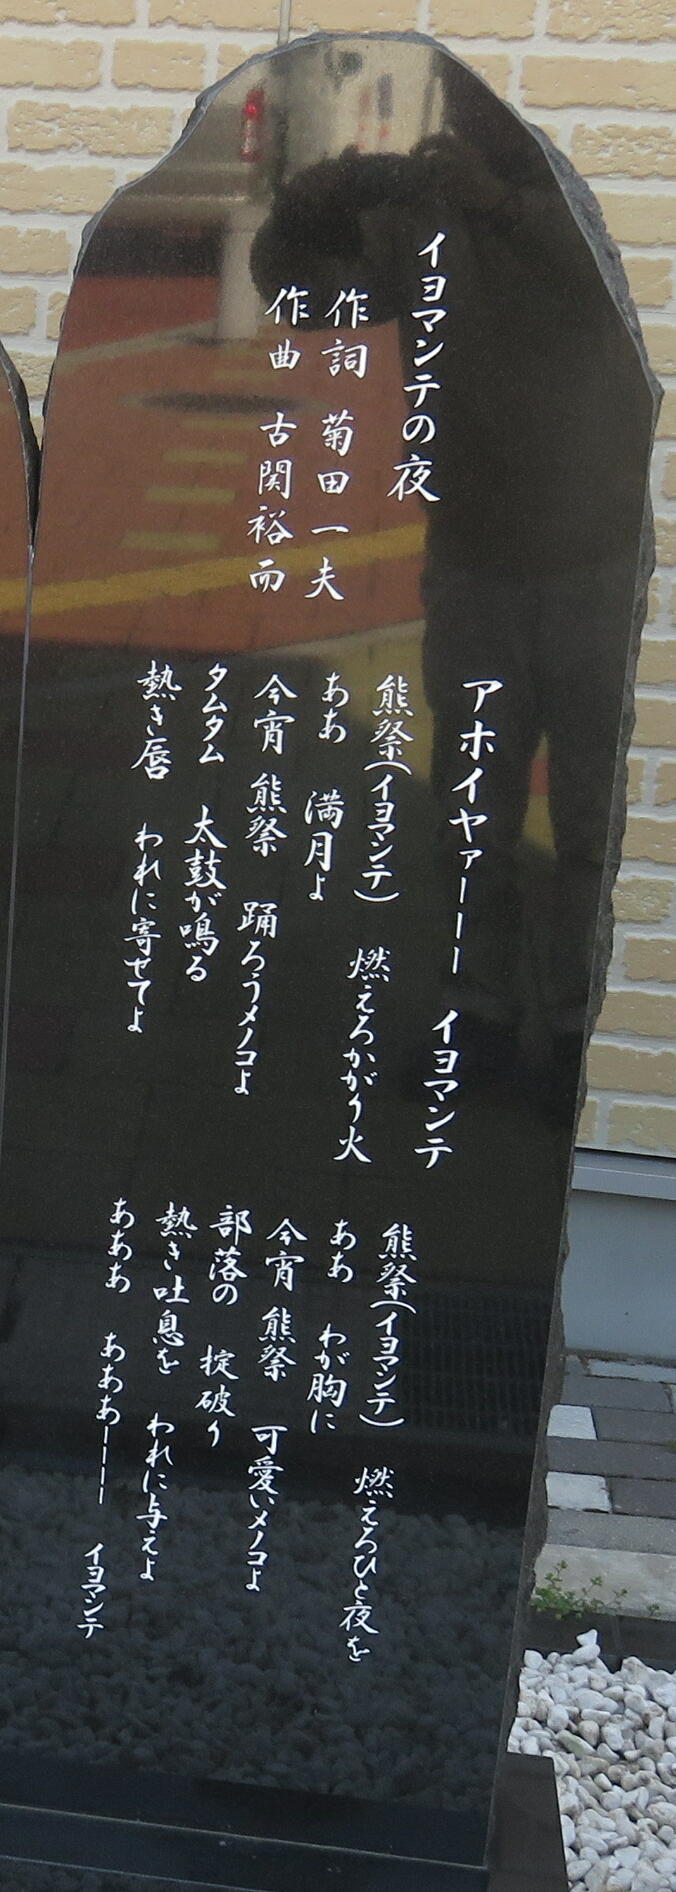 イヨマンテの夜
作詞 菊田一夫
作曲 古関裕而
アホイヤァーーー イヨマンテ
熊祭(イヨマンテ) 燃えろかがり火
ああ 満月よ
今宵 熊祭 踊ろうメノコよ
タムタム 太鼓が鳴る
熱き唇 われに寄せてよ
熊祭(イヨマンテ) 燃えろひと夜を
ああ わが胸に
今宵 熊祭 可愛いメノコよ
部落の 掟破り
熱き吐息を われに与えよ
あああ あああーーー イヨマンテ